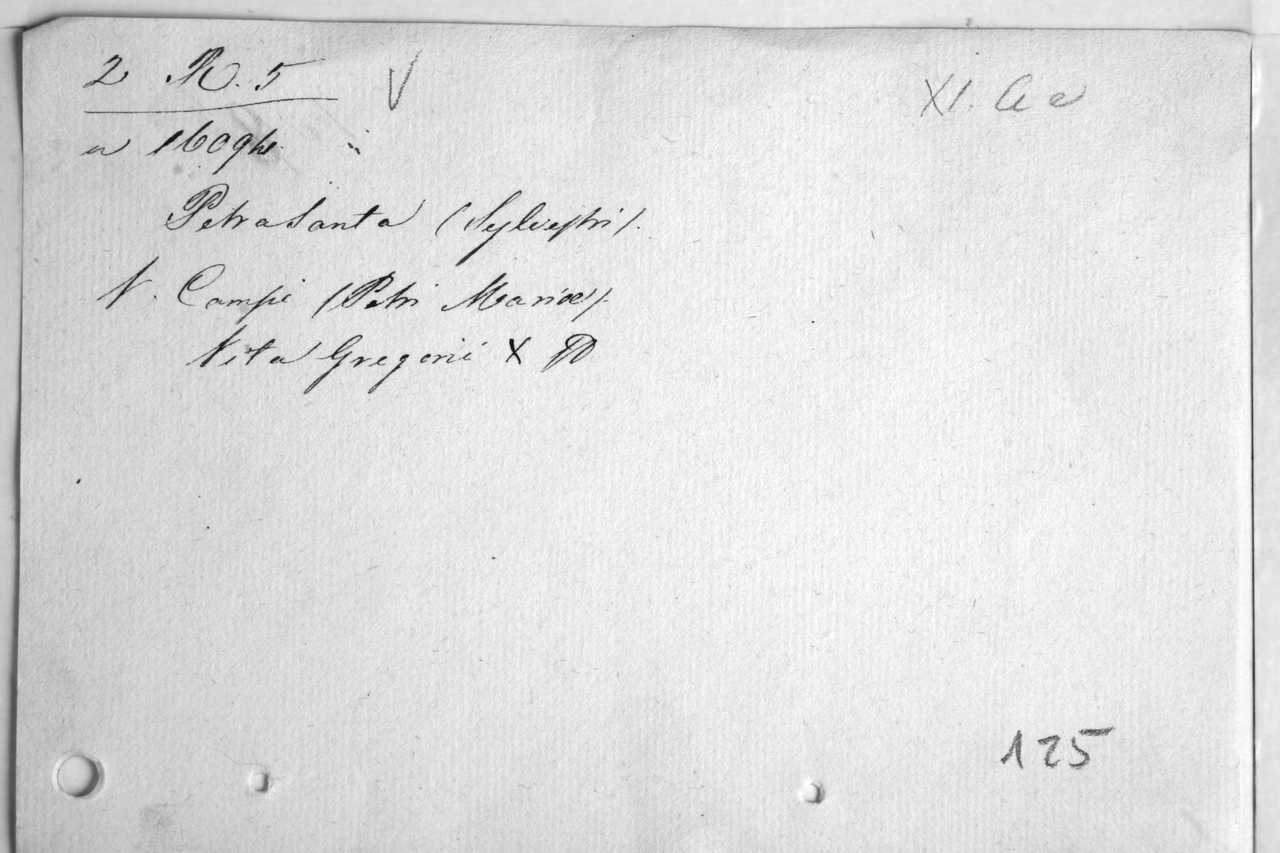 2 R. 5 V
XI. Ce
Petrasanta (Sylvestri).
V. Campi (Petri Mariæ).
Vita Gregorii X PP
125